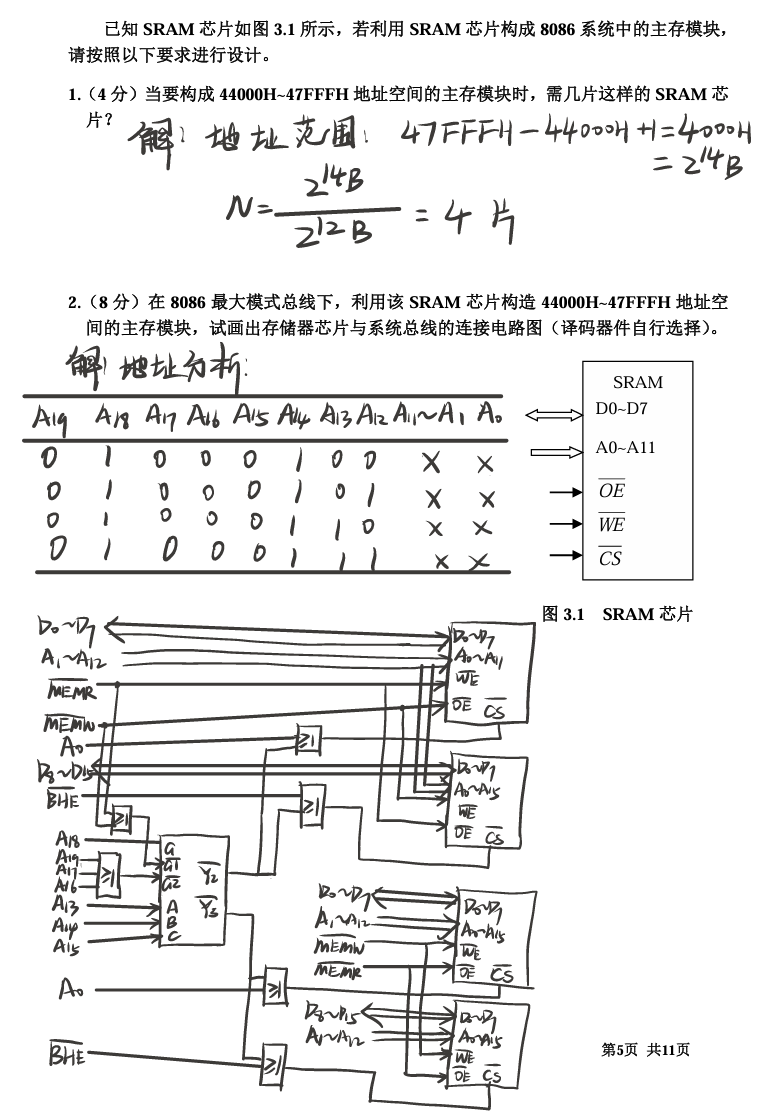 已知 SRAM 芯片如图 3.1 所示，若利用 SRAM 芯片构成 8086 系统中的主存模块，
请按照以下要求进行设计。
1.（4 分）当要构成 44000H~47FFFH 地址空间的主存模块时，需几片这样的 SRAM 芯
片？
解：地址范围：47FFFH－44000H+1=4000H
=2^14B
N= 2^14B / 2^12B = 4 片
2.（8 分）在 8086 最大模式总线下，利用该 SRAM 芯片构造 44000H~47FFFH 地址空
间的主存模块，试画出存储器芯片与系统总线的连接电路图（译码器件自行选择）。
解：地址分析：
A19 A18 A17 A16 A15 A14 A13 A12 A11~A1 A0
0 1 0 0 0 1 0 0 × ×
0 1 0 0 0 1 0 1 × ×
0 1 0 0 0 1 1 0 × ×
0 1 0 0 0 1 1 1 × ×
SRAM
D0~D7
A0~A11
OE
WE
CS
图 3.1 SRAM 芯片
D0~D7
A1~A12
MEMR
MEMW
A0
D8~D15
BHE
D0~D7
A0~A11
WE
OE CS
≥1
D0~D7
A0~A15
WE
OE CS
≥1
≥1
A18
A19
A17
A16
≥1
A13
A14
A15
G
G1
G2
A
B
C
Y2
Y3
A0
≥1
BHE
≥1
D0~D7
A1~A12
MEMW
MEMR
D0~D7
A0~A15
WE
OE CS
D8~D15
A1~A12
D0~D7
A0~A15
WE
OE CS
第5页 共11页